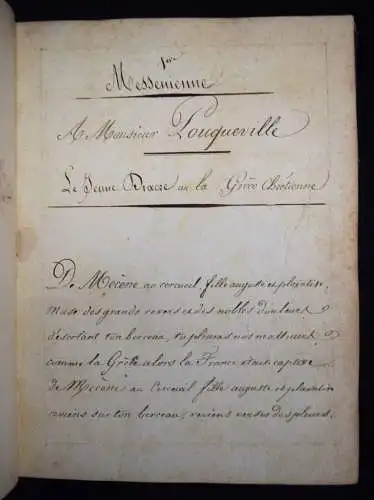 1ere
Messenienne
A Monsieur Pouqueville
Le Jeune Diacre ou la Grèce Chrétienne
De Mecène au cercueil fille auguste et plaintive
Muse des grands revers et des nobles douleurs
désertant ton berceau, tu pleuras nos malheurs
comme la Grèce alors la France était captive
de Mecène au Cercueil fille auguste et plaintive
reviens sur ton berceau, reviens verser des pleurs.